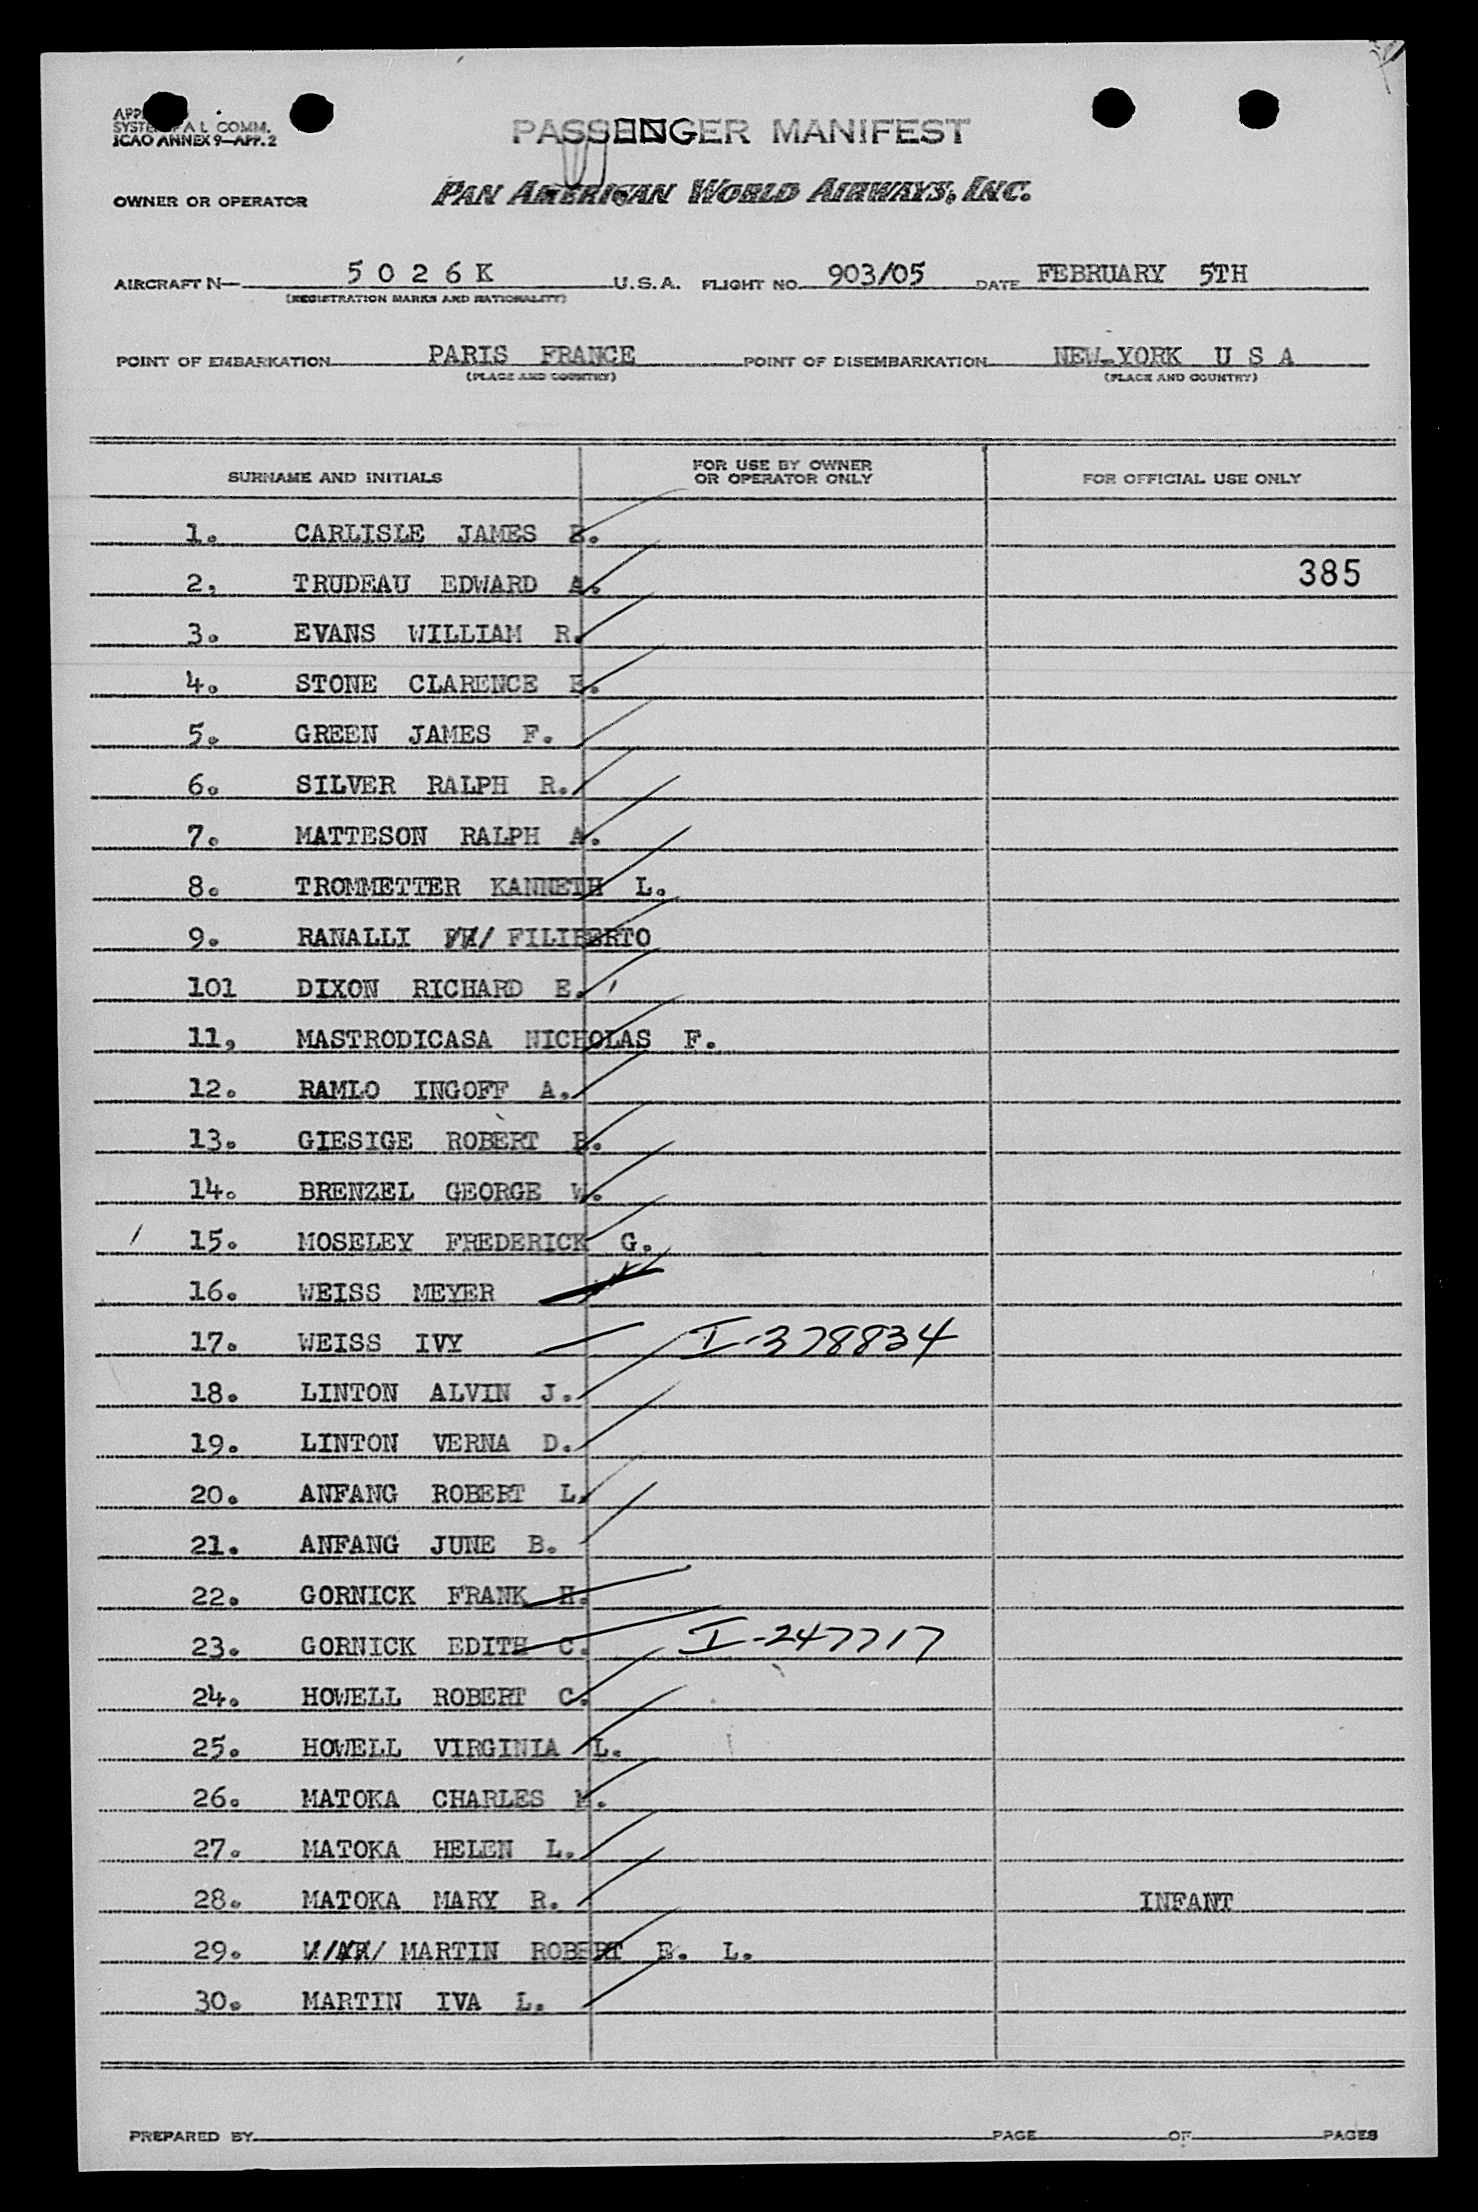 SYSTEM A L COMM.
ICAO ANNEX 9—APP. 2
PASSENGER MANIFEST
OWNER OR OPERATOR PAN AMERICAN WORLD AIRWAYS, INC.
AIRCRAFT N— 5 0 2 6 K U.S.A. FLIGHT NO. 903/05 DATE FEBRUARY 5TH
(REGISTRATION MARKS AND NATIONALITY)
POINT OF EMBARKATION PARIS FRANCE POINT OF DISEMBARKATION NEW-YORK U S A
(PLACE AND COUNTRY) (PLACE AND COUNTRY)
SURNAME AND INITIALS FOR USE BY OWNER OR OPERATOR ONLY FOR OFFICIAL USE ONLY
1. CARLISLE JAMES E.
2. TRUDEAU EDWARD A. 385
3. EVANS WILLIAM R.
4. STONE CLARENCE E.
5. GREEN JAMES F.
6. SILVER RALPH R.
7. MATTESON RALPH A.
8. TROMMETTER KANNETH L.
9. RANALLI FILIBERTO
101 DIXON RICHARD E.
11, MASTRODICASA NICHOLAS F.
12. RAMLO INGOFF A.
13. GIESIGE ROBERT
14. BRENZEL GEORGE W.
15. MOSELEY FREDERICK G.
16. WEISS MEYER
17. WEISS IVY I-378834
18. LINTON ALVIN J.
19. LINTON VERNA D.
20. ANFANG ROBERT L.
21. ANFANG JUNE B.
22. GORNICK FRANK H.
23. GORNICK EDITH C. I-247717
24. HOWELL ROBERT C.
25. HOWELL VIRGINIA L.
26. MATOKA CHARLES M.
27. MATOKA HELEN L.
28. MATOKA MARY R. INFANT
29. MARTIN ROBERT E. L.
30. MARTIN IVA L.
PREPARED BY PAGE OF PAGES